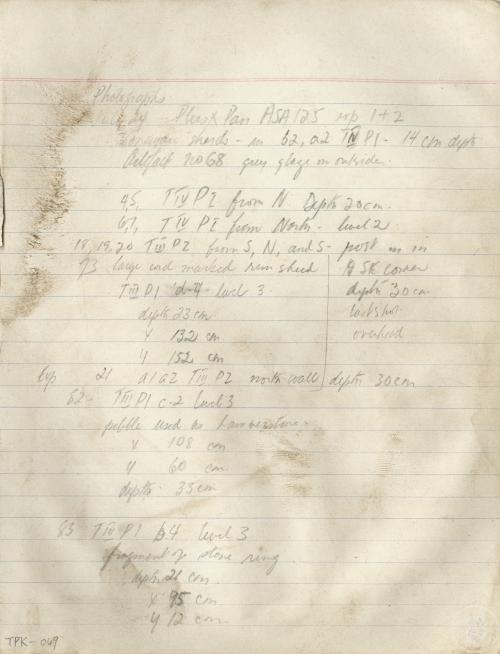 Photographs
July 24 Plus X Pan ASA 125 exp 1+2
sherds - in b2, a2 TIV P1 - 14 cm depth
Artifact no 68 grey glaze on outside.
4,5, TIV P1 from N. Depth 20 cm.
6,7, TIV P1 from North - level 2
18, 19, 20 TIII P2 from S, N, and S - post
73 large cord marked rim sherd
SE corner
TIII P1 d-4 - level 3.
depth 30 cm
depth 23 cm
last shot
x 132 cm
overhead
y 152 cm
Exp 21 a1 a2 TIII P2 north wall depth 30 cm
82 - TIII P1 c-2 level 3
pebble used as hammerstone -
x 108 cm
y 60 cm
depth - 33 cm
83 TIII P1 b4 level 3
fragment of stone ring
depth 21 cm
x 95 cm
y 12 cm
TPK-049